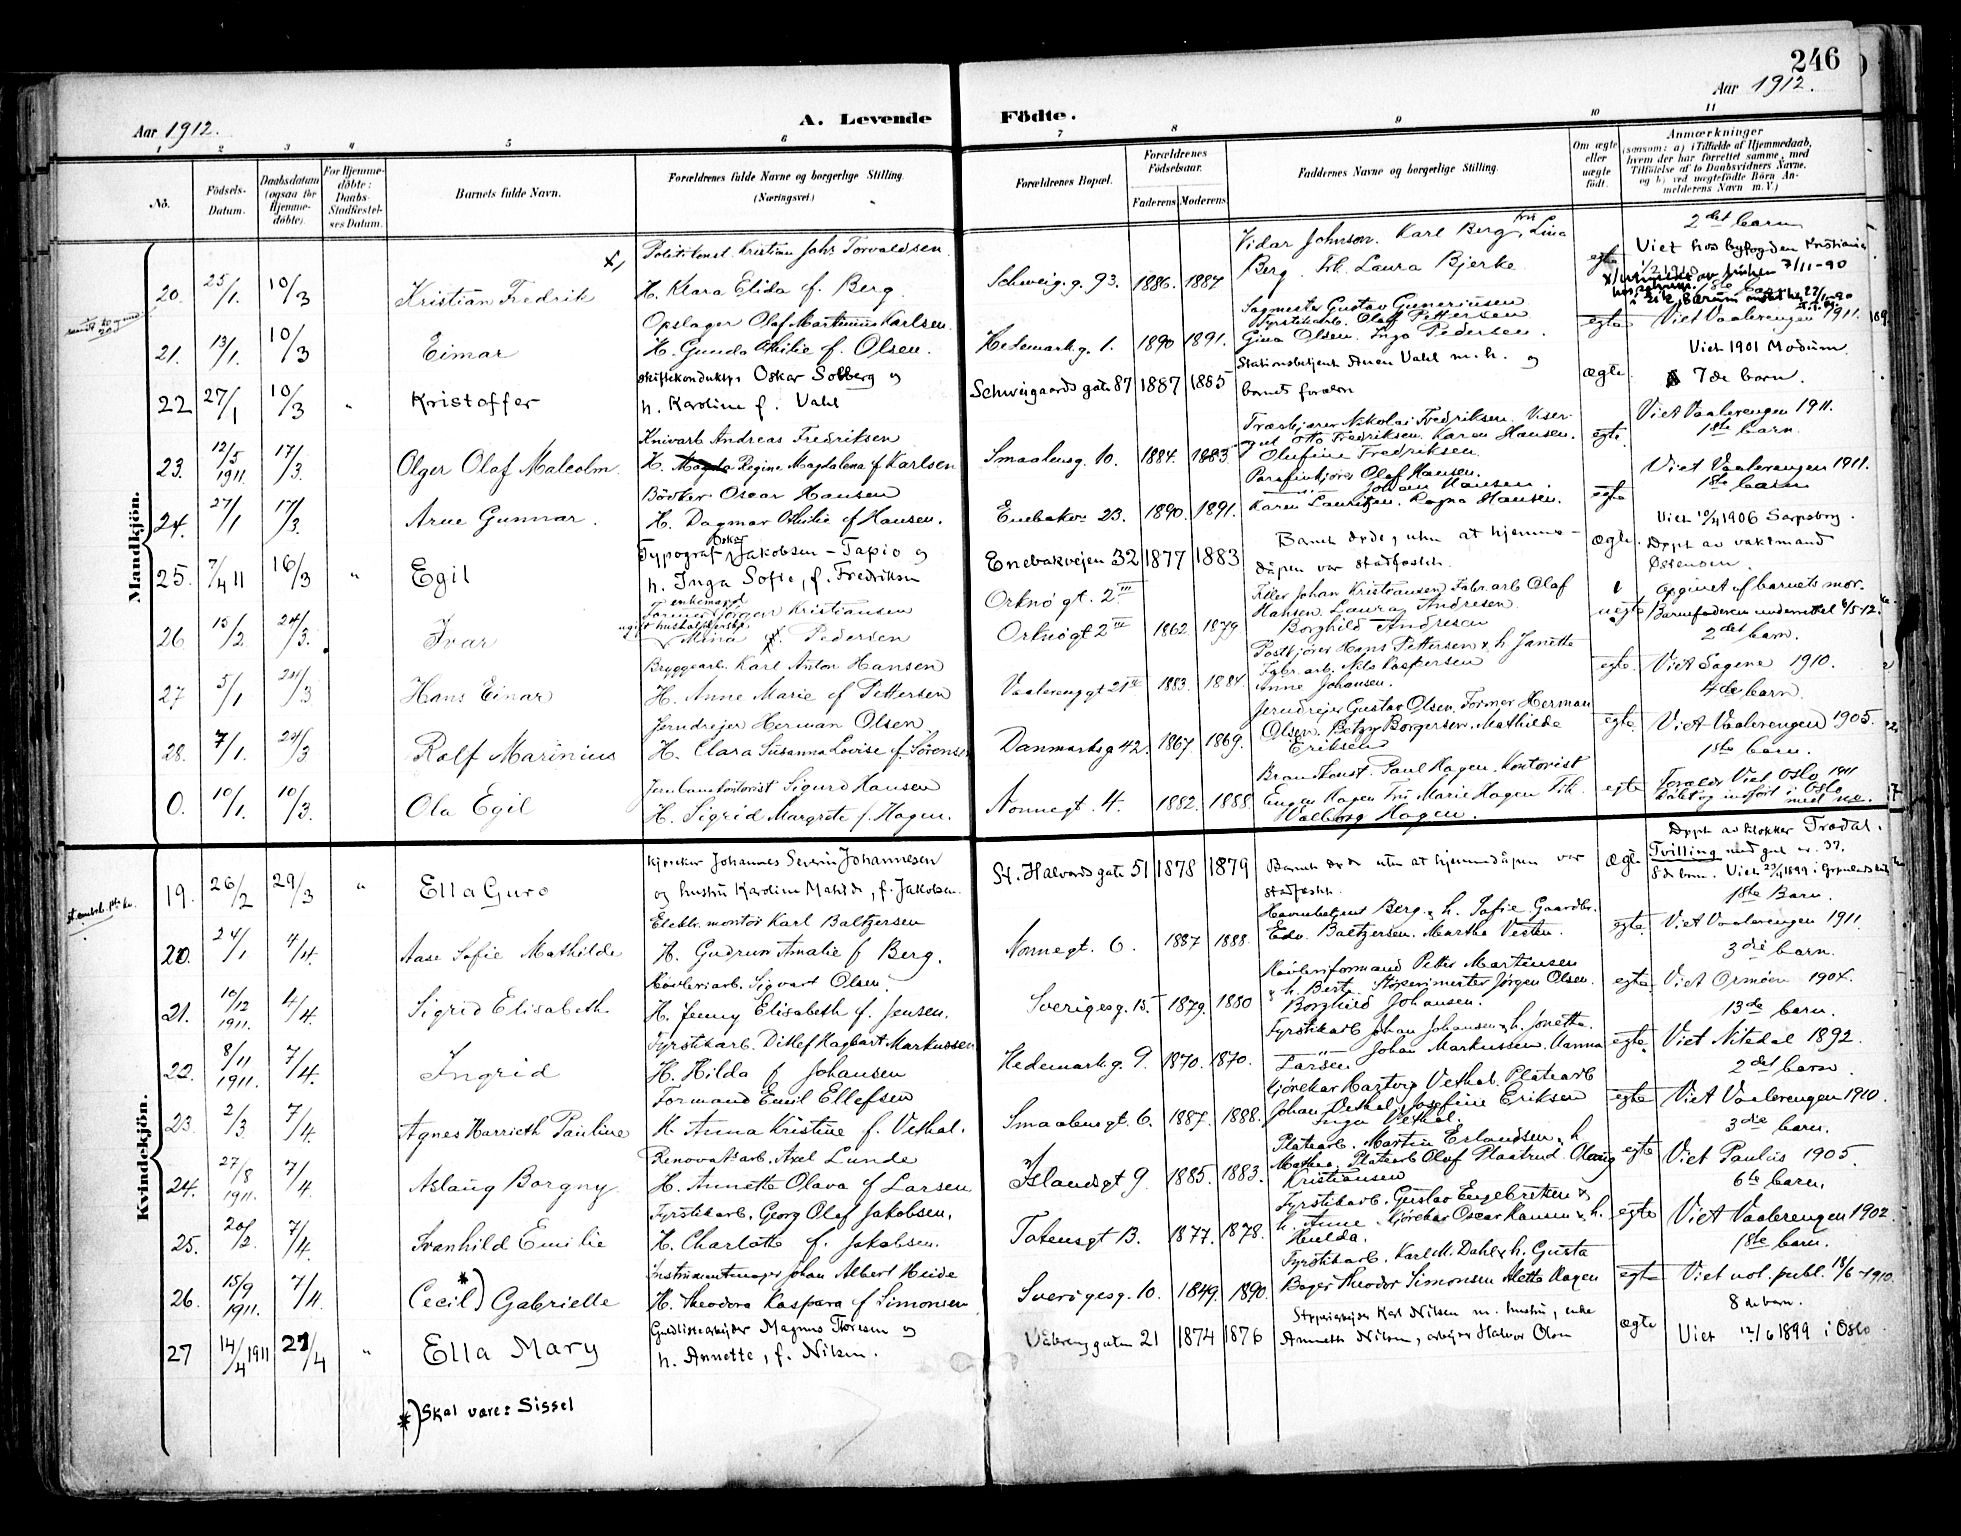 246
Aar 1912.
A. Levende Födte.
Aar 1912.
1 2 3 4 5 6 7 8 9 10 11
No.
Födsels-Datum.
Daabsdatum (ogsaa for Hjemme-döbte).
For Hjemme-döbte: Daabs-Stadfæstel-ses Datum.
Barnets fulde Navn.
Forældrenes fulde Navne og borgerlige Stilling.
(Næringsvei.)
Forældrenes Bopæl.
Forældrenes Födselsaar.
Faderens Moderens
Faddernes Navne og borgerlige Stilling.
Om ægte eller uægte födt.
Anmærkninger
(saasom: a) i Tilfælde af Hjemmedaab, hvem der har forrettet samme, med Tilföielse af to Daabsvidners Navne, og b) ved uægtefödte Börn Anmelderens Navn m. V.)
Mandkjön.
20. 25/1. 10/3 Kristian Fredrik x)
Politikonst. Kristian Johs Torvaldsen
H. Klara Elida f. Berg.
Schweig. g. 93. 1886. 1887
Vidar Johnson. Karl Berg, fru Lina
Berg. frk. Laura Bjerke
egte
2det barn
Viet hos byfogden Kristiania
21. 13/1. 10/3 Eimar
Opslager Olaf Martinius Karlsen.
H. Gunda Othilie f. Olsen.
Hedemark g. 1. 1890 1891.
Sagmester Gustav Guneriusen
Fyrstikarb. Olaf Pettersen
Gina Olsen. Inga Pedersen.
egte
1ste barn
Viet Vaalerengen 1911.
22 27/1 10/3 " Kristoffer
Skiftekonduktør Oskar Solberg og
h. Karoline f. Vahl
Schweigaards gate 87 1887 1885
Stationsbetjent Anen Vahl m. h. og
barnets forældre
ægte
Viet 1901 Modum.
7de barn.
23. 12/5 1911 17/3. Olger Olaf Malcolm.
Knivarb Andreas Fredriksen
H. Regine Magdalena f Karlsen
Smaalensg. 10. 1884. 1883
Træskjærer Nikolai Fredriksen. Viser-
gut Otto Fredriksen. Karen Hansen.
Olufine Fredriksen.
egte
Viet Vaalerengen 1911.
1ste barn.
24. 27/1 17/3. Arne Gunnar.
Bödker Oscar Hansen
H. Dagmar Othilie f Hansen.
Enebakv. 23. 1890. 1891.
Parafinkjörer Olaf Hansen.
Johan Hansen.
Karen Lauritzen. Ragna Hansen.
egte
Viet Vaalerengen 1911.
1ste barn
25. 7/4 11 16/3 " Egil
Typograf Oskar Jakobsen-Tapio og
h. Inga Sofie, f. Fredriksen
Enebakvejen 32 1877 1883
Barnet døde, uten at hjemme-
dåpen var stadfæstet.
ægte.
Viet 10/4 1906 Sarpsborg.
Døpt av vaktmand
Østensen.
26 15/2 24/3. Ivar
enkemand
Jörgen Kristiansen
ugift husholderske
Mina Pedersen
Orknö gt. 2 III
Orknögt 2 III 1862 1879
Filer Johan Kristiansen Fabr.arb Olaf
Hansen. Laura Andresen.
Borghild Andresen
uegte
opgivet af barnets mor.
Barnefaderen underrettet 6/5 12.
2det barn.
27 5/1 24/3 Hans Einar
Bryggearb. Karl Anton Hansen
H. Anne Marie f Pettersen
Vaalerenggt 21 1883. 1884.
Postkjörer Hans Pettersen & h Janette
Fabr.arb. Nils Kaspersen
Anne Johansen.
egte.
Viet Sagene 1910.
4de barn.
28. 7/1. 24/3 Rolf Marinius
Jerndreier Herman Olsen
H. Clara Susanna Lovise f. Sörensen
Danmarks g 42. 1867. 1869.
Jerndreier Gustav Olsen. Former Herman
Olsen. Betzy Borgersen. Mathilde
Eriksen
egte
Viet Vaalerengen 1905.
1ste barn.
0. 10/1. 10/3. Ola Egil
Jernbanekontorist Sigurd Hansen
H. Sigrid Margrete f. Hagen.
Nonnegt. 4. 1882. 1888
Brandkonst. Paul Hagen. Kontorist
Eugen Hagen Fru Marie Hagen Frk.
Valborg Hagen.
egte
Foreldr. Viet Oslo 1911
Kvindekjön.
19. 26/2 29/3 " Ella Guro
Kjøreker Johannes Severin Johannesen
og hustru Karoline Matilde, f. Jakobsen.
St. Halvards gate 51 1878 1879
Barnet døde uten at hjemmedåpen var
stadfæstet.
ægte
Døpt av klokker Trædal.
Tvilling med gut nr. 37.
20. 24/1 4/4. Aase Sofie Mathilde
Elektr. montör Karl Baltzersen
H. Gudrun Amalie f Berg.
Nonnegt. 6. 1887 1888.
Havnebetjent Berg & h. Sofie Gaardbr.
Edv. Baltzersen. Martha Vesten.
egte.
1ste Barn.
Viet Vaalerengen 1911.
21. 10/12 1911. 4/4. Sigrid Elisabeth
Sigvart Olsen.
H. Jenny Elisabeth f. Jensen.
Sverigesg. 15. 1879. 1880
Peter Martinsen
& h. Berte. Stöperimester Jörgen Olsen.
Borghild Johansen.
egte.
3die barn.
Viet Ormöen 1904.
22. 8/11 1911. 7/4. Ingrid
Fyrstikarb. Ditlef Hagbart Markussen
H. Hilda f Johansen
Hedemark g. 9. 1870. 1870.
Fyrstikarb Johan Johansen & h. Jonetta.
Johan Markussen. Hanna
Larsen
egte.
13de barn.
Viet Nitedal 1892.
23. 2/3 7/4. Agnes Harrieth Pauline
Formand Emil Ellefsen
H. Anna Kristine f. Vethal.
Smaalensgt 6. 1887. 1888.
Kjörekar Hartvig Vethal. Platearb
Johan Vethal. Josefine Eriksen
Inga Vethal.
egte
2det barn.
Viet Vaalerengen 1910.
24. 27/8 1911. 7/4 Aslaug Borgny
Renovat.arb. Axel Lunde
H. Annette Olava f Larsen
Islandsgt 9 1885. 1883.
Platearb. Martin Erlandsen & h
Mathea. Platearb Olaf Plaatrud. Olaug
Kristiansen
egte
3die barn.
Viet Paulus 1905.
25. 20/2. 7/4. Svanhild Emilie
Fyrstikarb. Georg Olaf Jakobsen.
H. Charlotte f. Jakobsen.
Totensgt 13. 1877. 1878.
Fyrstikarb. Gustav Engebretsen &
h. Anne. Kjörekar Oscar Hansen & h.
Hulda.
egte
6te barn.
Viet Vaalerengen 1902.
26. 15/9 1911. 7/4. Cecil *) Gabrielle
Instrumentmager Johan Albert Heide
H. Theodora Kaspara f Simonsen
Sverigesg. 10. 1849. 1890.
Fyrstikarb. Karl M. Dahl & h. Gusta
Bager Theodor Simonsen Alette Hagen
egte
1ste barn.
Viet not. publ. 18/6-1910.
27 14/4 1911 27/4 " Ella Mary
Magnus Thoresen og
h. Annette, f. Nilsen.
Vålerenggaten 21 1874 1876
Støperiarbeider Karl Nilsen m. hustru, enke
Anneth Nilsen, arbeider Halvor Olsen
ægte
8de barn.
Viet 12/6 1899 i Oslo
*) Skal være: Sissel